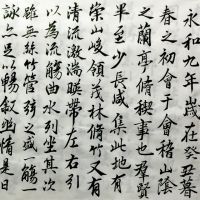 永和九年歲在癸丑暮
春之初會于會稽山陰
之蘭亭脩稧事也群賢
畢至少長咸集此地有
崇山峻領茂林脩竹又有
清流激湍暎帶左右引
以為流觴曲水列坐其次
雖無絲竹管弦之盛一觴一
詠亦足以暢叙幽情是日